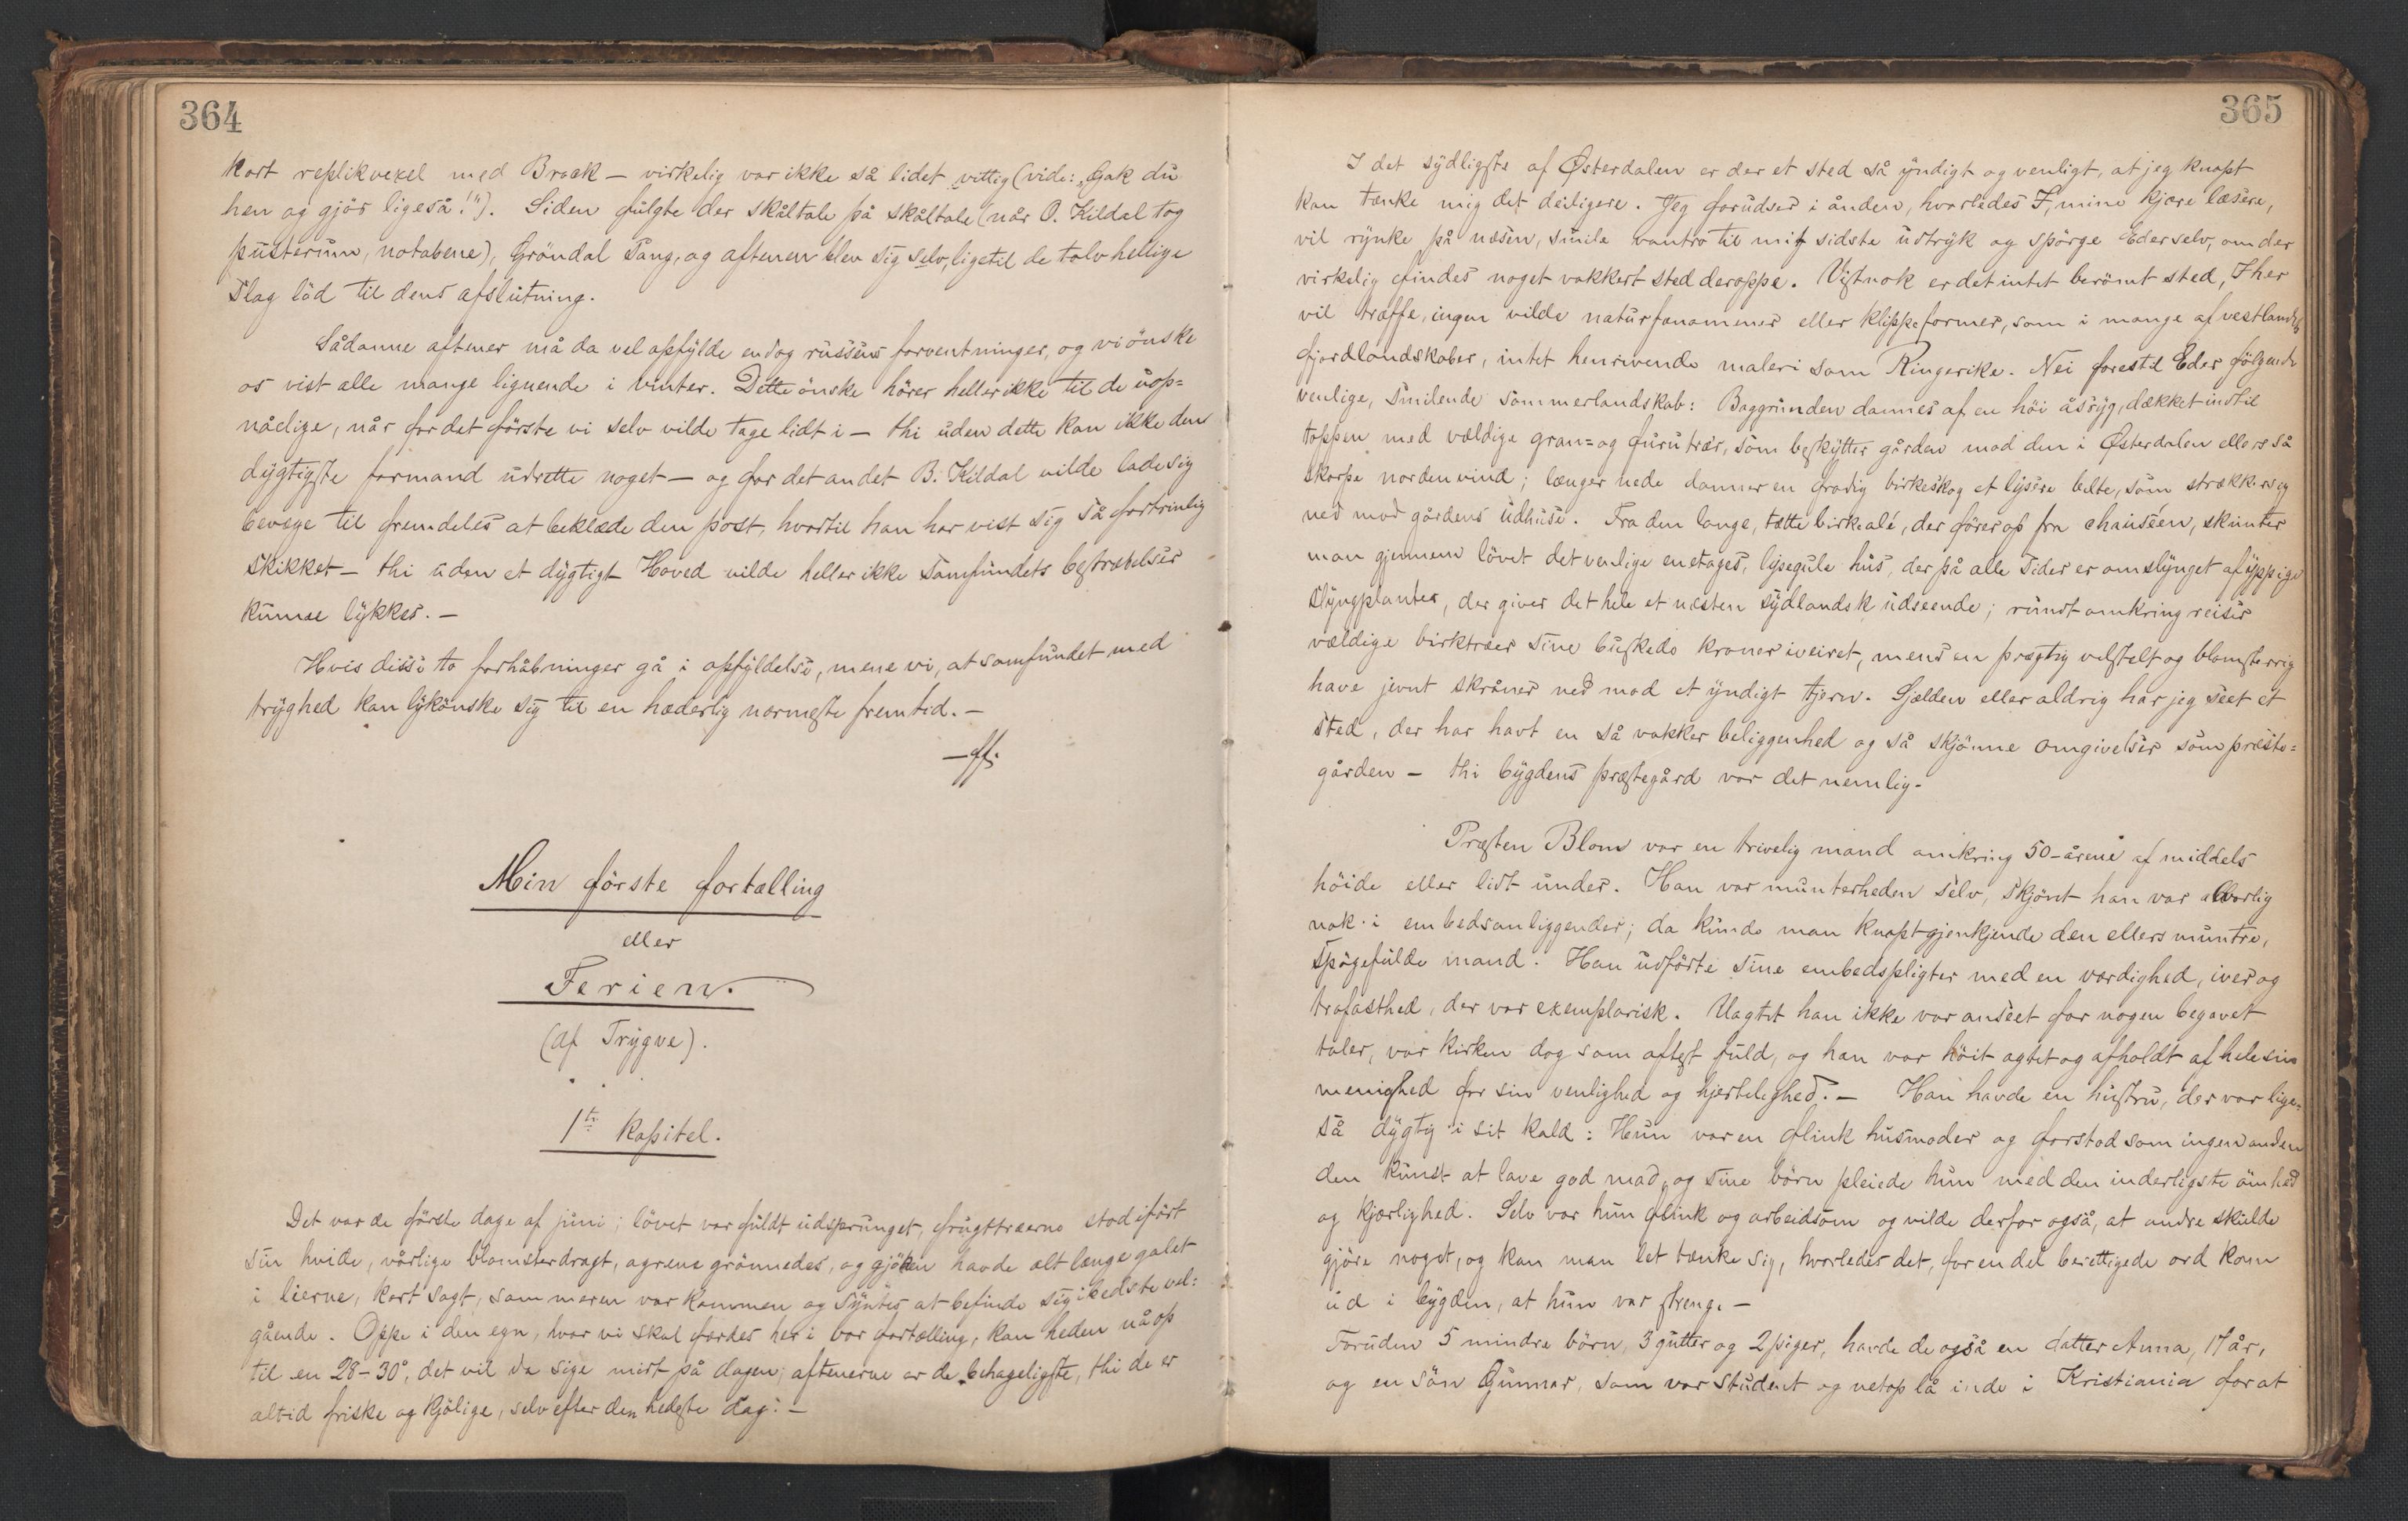 364
kort replikvexel med Brock – virkelig var ikke så lidet vittig (vide: „Gak du
hen og gjör ligeså!"). Siden fulgte der skåltale på skåltale (når O. Kildal tog
pusterum, notabene), Gröndal sang, og aftenen blev sig selv, ligetil de tolv hellige
slag löd til dens afslutning.
Sådanne aftener må da vel opfylde endog russens forventninger, og vi önske
os vist alle mange lignende i vinter. Dette önske hörer heller ikke til de uop=
nåelige, når for det förste vi selv vilde tage lidt i – thi uden dette kan ikke den
dygtigste formand udrette noget – og for det andet B. Kildal vilde lade sig
bevæge til fremdeles at beklæde den post, hvortil han har vist sig så fortrinlig
skikket – thi uden et dygtigt Hoved vilde heller ikke samfundets bestræbelser
kunne lykkes. –
Hvis disse to forhåbninger gå i opfyldelse, mene vi, at samfundet med
tryghed kan lykönske sig til en hæderlig nærmeste fremtid. –
Min förste fortælling
eller
Ferien.
(af Trygve).
1te kapitel.
Det var de förste dage af juni; lövet var fuldt udsprunget, frugttræerne stod iført
sin hvide, vårlige blomsterdragt, agrene grönnedes, og gjöken havde alt længe galet
i lierne, kort sagt, sommeren var kommen og syntes at befinde sig i bedste vel=
gående. Oppe i den egn, hvor vi skal færdes her i vor fortælling, kan heden nå op
til en 28–30°, det vil da sige midt på dagen; aftenerne er de behageligste, thi de er
altid friske og kjölige, selv efter den hedeste dag. –
365
I det sydligste af Østerdalen er der et sted så yndigt og venligt, at jeg knapt
kan tænke mig det deiligere. Jeg forudser i ånden, hvorledes I, mine kjære læsere,
vil rynke på næsen, smile vantro til mit sidste udtryk og spörge Eder selv, om der
virkelig findes noget vakkert sted deroppe. Vistnok er det intet berömt sted, I her
vil træffe, ingen vilde naturfænomener eller klippeformer, som i mange af vestlandets
fjordlandskaber, intet henrivende maleri som Ringerike. Nei forestil Eder fölgende
venlige, smilende sommerlandskab: Baggrunden dannes af en höi åsryg, dækket indtil
toppen med vældige gran= og furutrær, som beskytter gården mod den i Østerdalen ellers så
skarpe nordenvind; længer nede danner en frodig birkeskog et lysere belte, som strækker sig
ned mod gårdens udhuse. Fra den lange, tætte birkealé, der förer op fra chauséen, skimter
man gjennem lövet det venlige enetages, lysegule hus, der på alle sider er omslynget af yppige
slyngplanter, der giver det hele et næsten sydlandsk udseende; rundt omkring reiser
vældige birktræer sine buskede kroner iveiret, mens en prægtig velstelt og blomsterrig
have jevnt skråner ned mod et yndigt tjern. Sjelden eller aldrig har jeg seet et
sted, der har havt en så vakker beliggenhed og så skjönne omgivelser som præste=
gården – thi bygdens præstegård var det nemlig.
Præsten Blom var en trivelig mand omkring 50-årene af middels
höide eller lidt under. Han var munterheden selv, skjönt han var alvorlig
nok i embedsanliggender; da kunde man knapt gjenkjende den ellers muntre,
spögefulde mand. Han udförte sine embedspligter med en værdighed, iver og
trofasthed, der var exemplarisk. Uagtet han ikke var anseet for nogen begavet
taler, var kirken dog som oftest fuld, og han var höit agtet og afholdt af hele sin
menighed for sin venlighed og hjertelighed. – Han havde en hustru, der var lige=
så dygtig i sit kald: Hun var en flink husmoder og forstod som ingen anden
den kunst at lave god mad, og sine börn pleiede hun med den inderligste ömhed
og kjærlighed. Selv var hun flink og arbeidsom og vilde derfor også, at andre skulde
gjöre noget, og kan man let tænke sig, hvorledes det, for en del berettigede ord kom
ud i bygden, at hun var streng. –
Foruden 5 mindre börn, 3 gutter og 2 piger, havde de også en datter Anna, 17 år,
og en sön Gunnar, som var student og netop lå inde i Kristiania for at